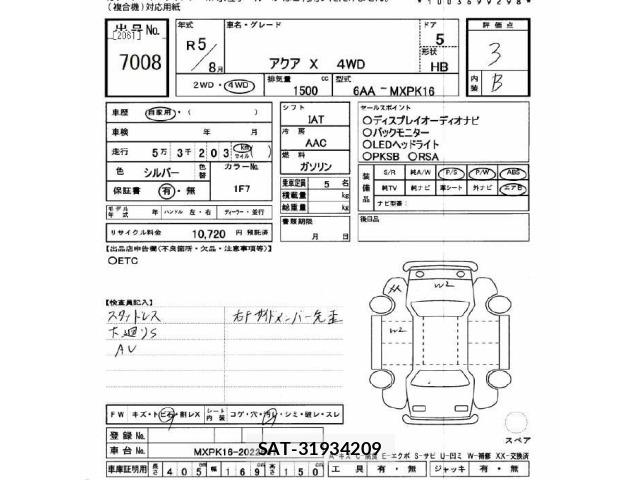 (複合機)対応用紙
*1003699298*
出品No.
[2061]
7008
年式
車名・グレード
ドア
評価点
R5/8月
アクア X 4WD
5
3
形状
HB
2WD・4WD
排気量 cc
型式
内装
1500
6AA－MXPK16
B
車歴 自家用・( )
シフト
IAT
セールスポイント
○ディスプレイオーディオナビ
○バックモニター
○LEDヘッドライト
○PKSB ○RSA
車検 年 月
冷房
AAC
走行 5万3千203 km マイル ( )
燃料
ガソリン
色 シルバー 色替 カラーNo. 1F7
装備品
S/R 純A/W P/S P/W ABS
保証書 有・無
乗車定員 5 名
純TV 純ナビ 革シート 外ナビ エアB
積載量 kg
ナビ型番:
モデル年式 年 ハンドル 左・右 ディーラー・並行
総重量 kg
後日品
リサイクル料金 10,720 円 預託済
書類期限 月 日
【出品店申告欄(不良箇所・欠品・注意事項等)】
○ETC
【検査員記入】
スタッドレス
下廻りS
AU
右Fサイドメンバー先歪
XX
W2
W2
FW キズ・トビ石・割レX シート内装 コゲ・穴・汚レ・シミ・破レ・スレ
登録No.
スペア
車台No. MXPK16-2022
SAT-31934209
A-キズ E-エクボ S-サビ U-凹ミ W-補修 XX-交換済
車庫証明用 長さ 405 幅 169 高さ 150 工具 有・無 ジャッキ 有・無